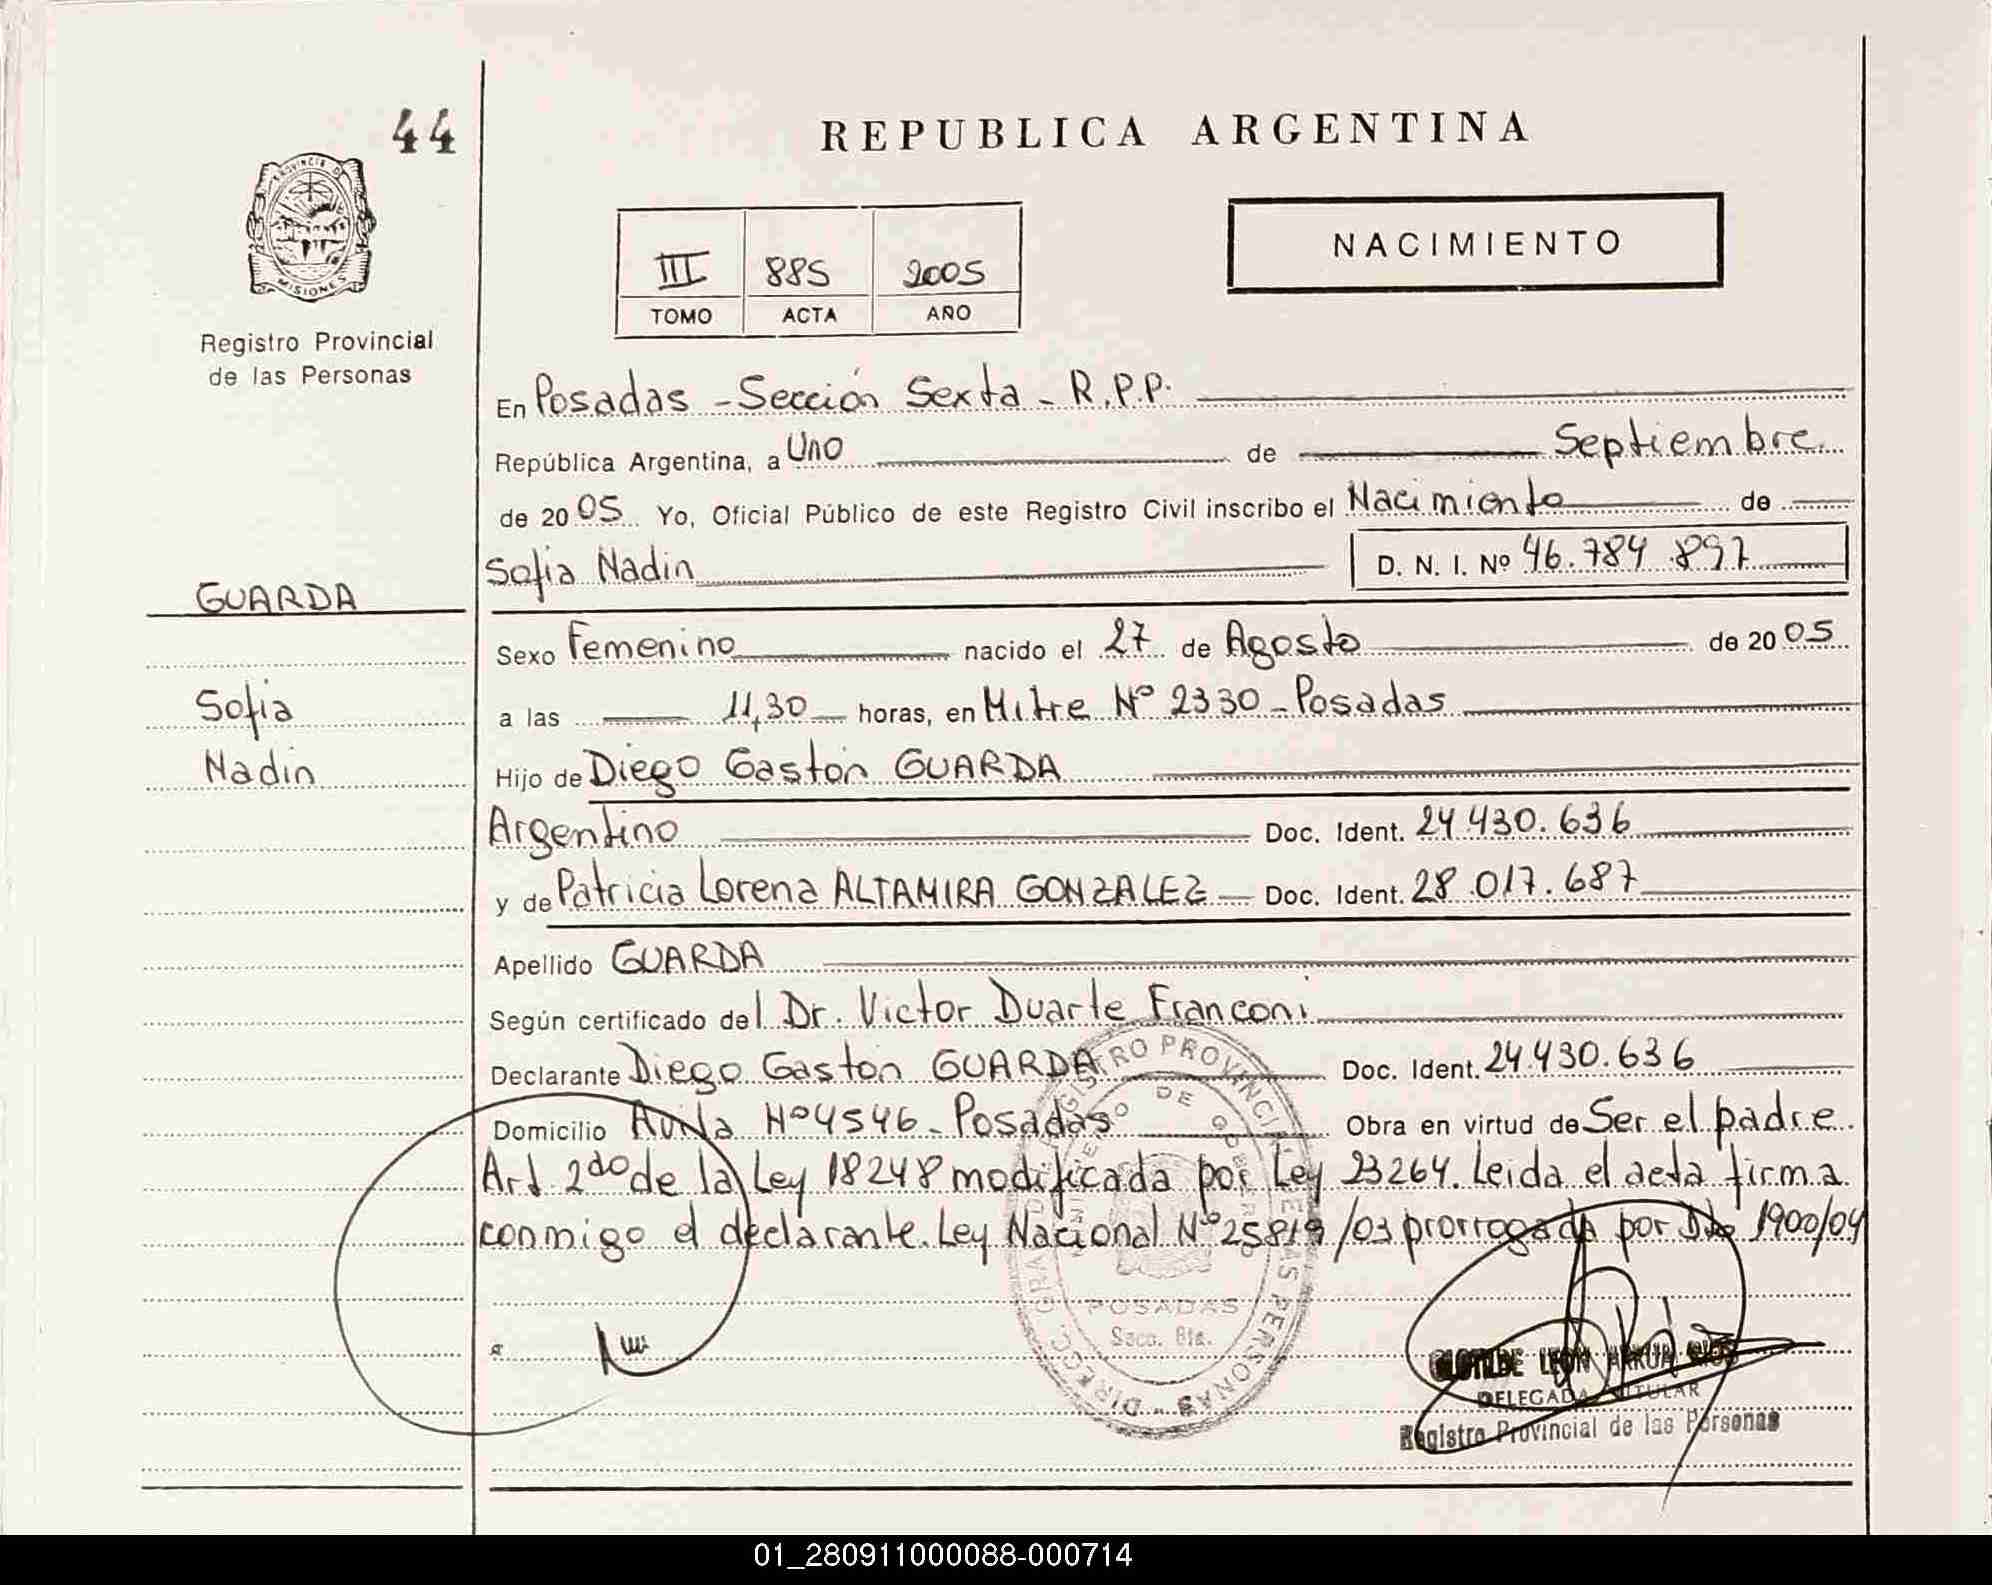 44
REPUBLICA ARGENTINA
PROVINCIA DE
MISIONES
Registro Provincial
de las Personas
III 885 2005
TOMO ACTA AÑO
NACIMIENTO
En Posadas - Sección Sexta - R.P.P.
República Argentina, a Uno de Septiembre
de 2005 Yo, Oficial Público de este Registro Civil inscribo el Nacimiento de
Sofia Nadin D. N. I. Nº 46.784.897
GUARDA
Sofia
Nadin
Sexo Femenino nacido el 27 de Agosto de 2005
a las 11,30 horas, en Mitre Nº 2330 - Posadas
Hijo de Diego Gastón GUARDA
Argentino Doc. Ident. 24.430.636
y de Patricia Lorena ALTAMIRA GONZALEZ Doc. Ident. 28.017.687
Apellido GUARDA
Según certificado del Dr. Victor Duarte Franconi
Declarante Diego Gastón GUARDA Doc. Ident. 24.430.636
Domicilio Avila Nº 4546 - Posadas Obra en virtud de Ser el padre.
Art 2do de la Ley 18248 modificada por Ley 23264. Leida el acta firma
conmigo el declarante. Ley Nacional Nº 25819/03 prorrogada por Dto 1900/04
POSADAS
Secc. 6ta.
CLOTILDE LEON
DELEGADA TITULAR
Registro Provincial de las Personas
01_280911000088-000714